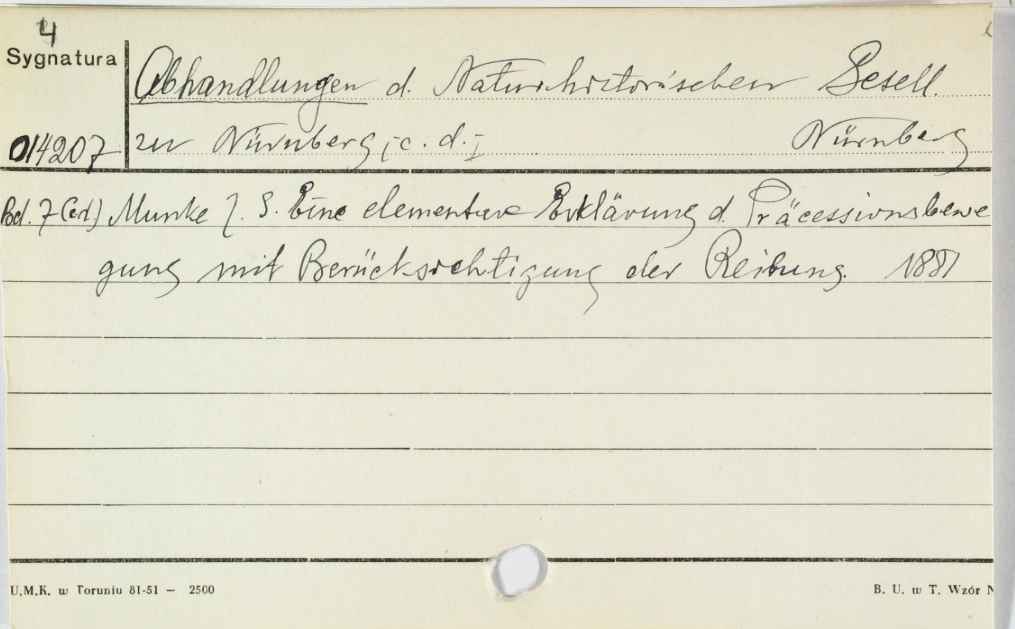 4
Sygnatura
Abhandlungen d. Naturhistorischen Gesell.
014207 zu Nürnberg, c. d. Nürnberg
Bd. 7 Munke J. S. Eine elementare Erklärung d. Präcessionsbewe
gung mit Berücksichtigung der Reibung. 1881
U.M.K. w Toruniu 81-51 — 2500
B. U. w T. Wzór N